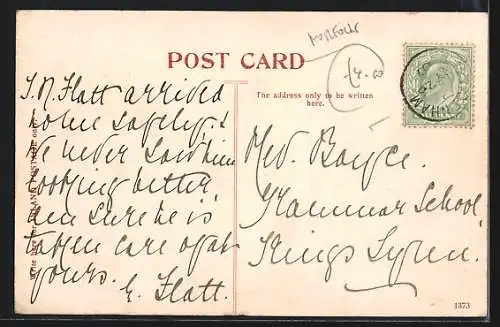 Norfolk
POST CARD
£4-00
The address only to be written
here.
J. R. Flatt arrived
home safely &
We never saw him
looking better,
am sure he is
taken care of at
yours.
E. Flatt.
Med. Boyce.
Grammar School,
Kings Lynn.
1373